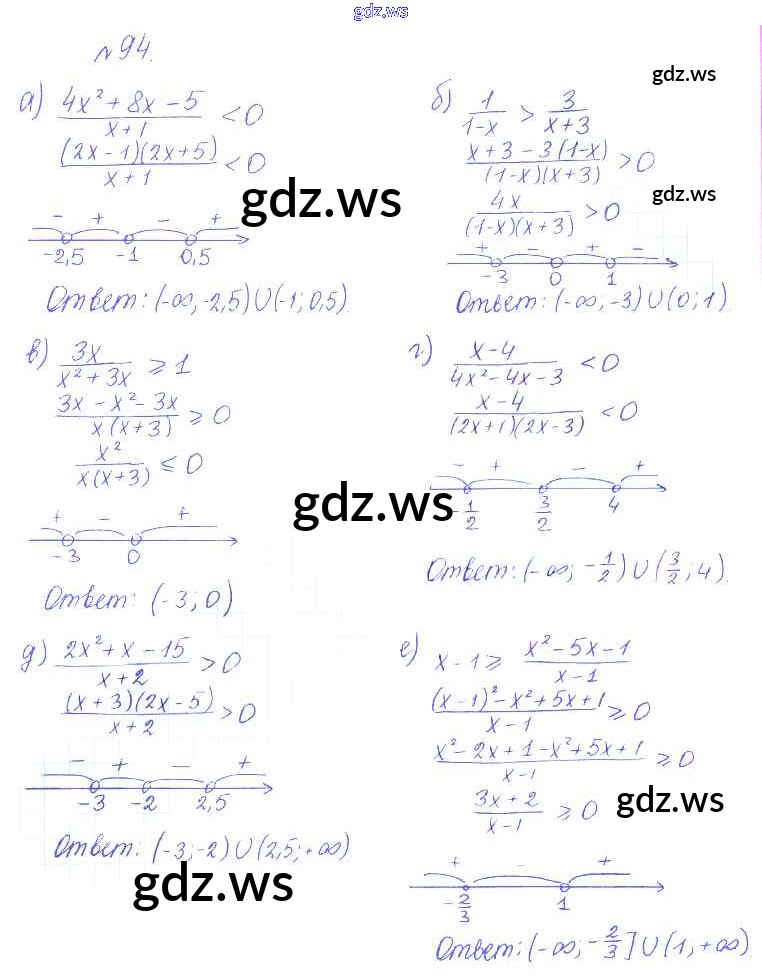 gdz.ws
№94.
а) (4x² + 8x - 5)/(x+1) < 0
((2x - 1)(2x+5))/(x+1) < 0
- + - +
-2,5 -1 0,5
Ответ: (-∞; -2,5) ∪ (-1; 0,5).
gdz.ws
gdz.ws
б) 1/(1-x) > 3/(x+3)
(x+3 - 3(1-x))/((1-x)(x+3)) > 0
4x/((1-x)(x+3)) > 0
gdz.ws
+ - + -
-3 0 1
Ответ: (-∞; -3) ∪ (0; 1).
в) 3x/(x² + 3x) ≥ 1
(3x - x² - 3x)/(x(x+3)) ≥ 0
x²/(x(x+3)) ≤ 0
+ - +
-3 0
Ответ: (-3; 0)
gdz.ws
г) (x-4)/(4x² - 4x - 3) < 0
(x-4)/((2x+1)(2x-3)) < 0
- + - +
-1/2 3/2 4
Ответ: (-∞; -1/2) ∪ (3/2; 4).
д) (2x² + x - 15)/(x+2) > 0
((x+3)(2x-5))/(x+2) > 0
- + - +
-3 -2 2,5
Ответ: (-3; -2) ∪ (2,5; +∞)
gdz.ws
е) x-1 ≥ (x² - 5x - 1)/(x-1)
((x-1)² - x² + 5x + 1)/(x-1) ≥ 0
(x² - 2x + 1 - x² + 5x + 1)/(x-1) ≥ 0
(3x+2)/(x-1) ≥ 0
gdz.ws
+ - +
-2/3 1
Ответ: (-∞; -2/3] ∪ (1; +∞).